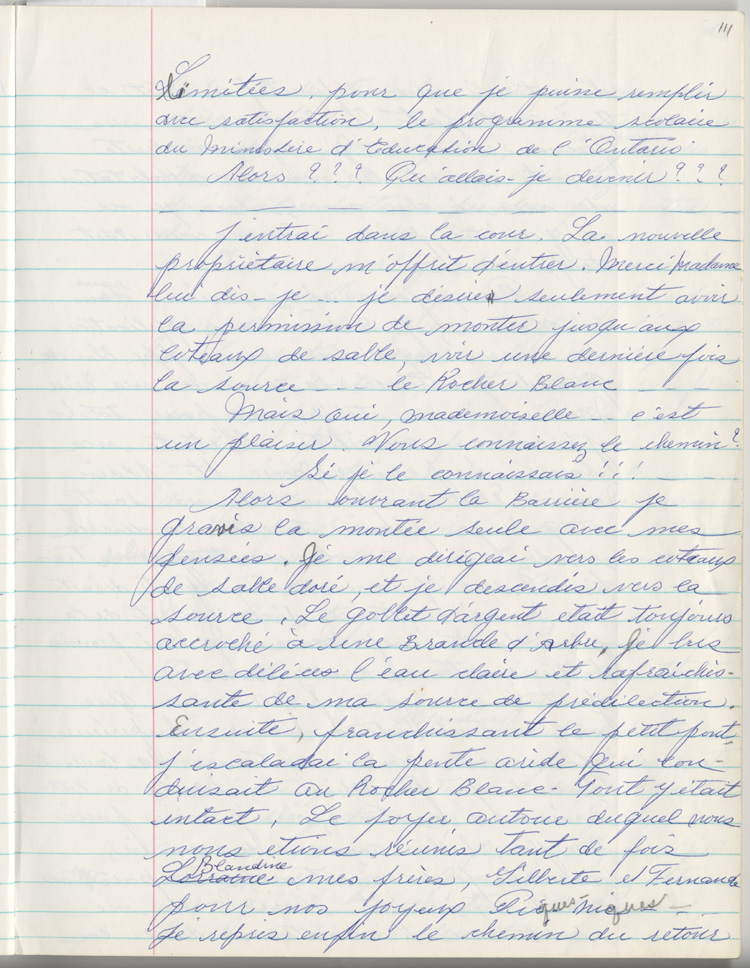 111
Limitées, pour que je puisse remplir
avec satisfaction, le programme scolaire
du Ministère d'Éducation de l'Ontario
Alors ? ? ? Qu'allais-je devenir ? ? ?
J'entrai dans la cour. La nouvelle
propriétaire m'offrit d'entrer. Merci madame
lui dis-je ... je désire seulement avoir
la permission de monter jusqu'aux
coteaux de sable, voir une dernière fois
la source - - - le Rocher Blanc
Mais oui, mademoiselle ... c'est
un plaisir. Vous connaissez le chemin?
Si je le connaissais !!!
Alors ouvrant la Barrière je
gravis la montée seule avec mes
pensées. Je me dirigeai vers les coteaux
de sable doré, et je descendis vers la
source. Le gobet d'argent etait toujours
accroché à une Branche d'Arbre, je bus
avec délices l'eau claire et rafraîchis-
sante de ma source de prédilection.
Ensuite, franchissant le petit pont
j'escaladai la pente aride qui con-
duisait au Rocher Blanc. Tout y était
intact, Le foyer autour duquel nous
nous etions réunis tant de fois
Blandine
Lorraine mes frères, Gilberte et Fernande
pour nos joyeux Piques-niques -
Je repris enfin le chemin du retour